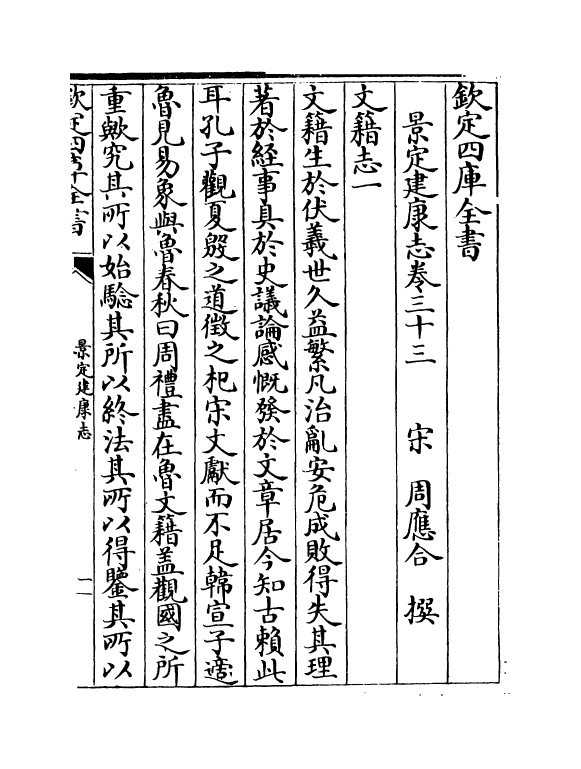 欽定四庫全書
景定建康志卷三十三 宋 周應合 撰
文籍志一
文籍生於伏羲世久益繁凡治亂安危成敗得失其理
著於經事具於史議論感慨發於文章居今知古賴此
耳孔子觀夏殷之道徵之杞宋文獻而不足韓宣子適
魯見易象與魯春秋曰周禮盡在魯文籍盖觀國之所
重歟究其所以始驗其所以終法其所以得鑒其所以
欽定四庫全書
景定建康志
一